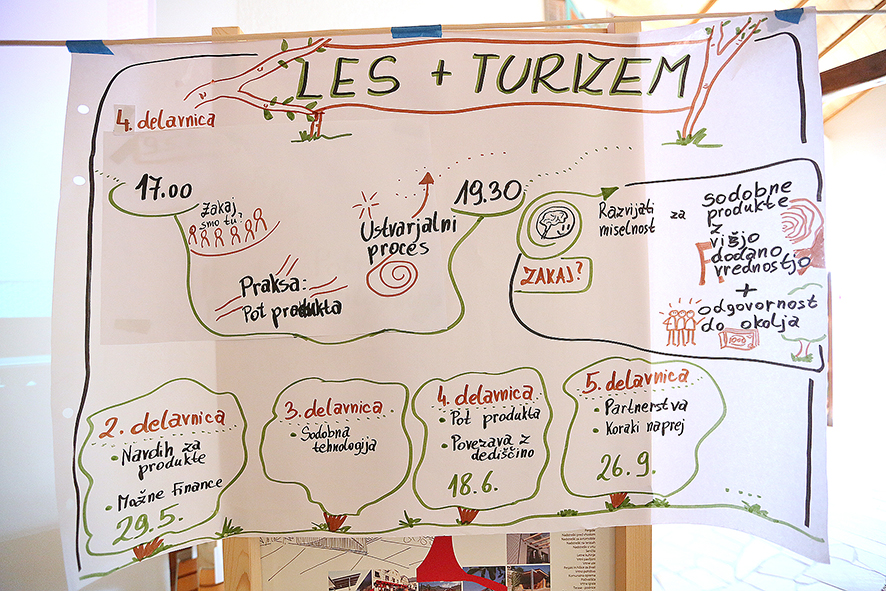 LES + TURIZEM
4. delavnica
17.00
Zakaj
smo tu?
Praksa:
Pot produkta
Ustvarjalni
proces
19.30
ZAKAJ?
Razvijati za
miselnost
sodobne
produkte
z
višjo
dodano
vrednostjo
+
odgovornost
do okolja
2. delavnica
• Navdih za
produkte
• Možne finance
29.5.
3. delavnica
• Sodobna
tehnologija
4. delavnica
• Pot produkta
• Povezava z
dediščino
18.6.
5. delavnica
• Partnerstva
• Koraki naprej
26.9.